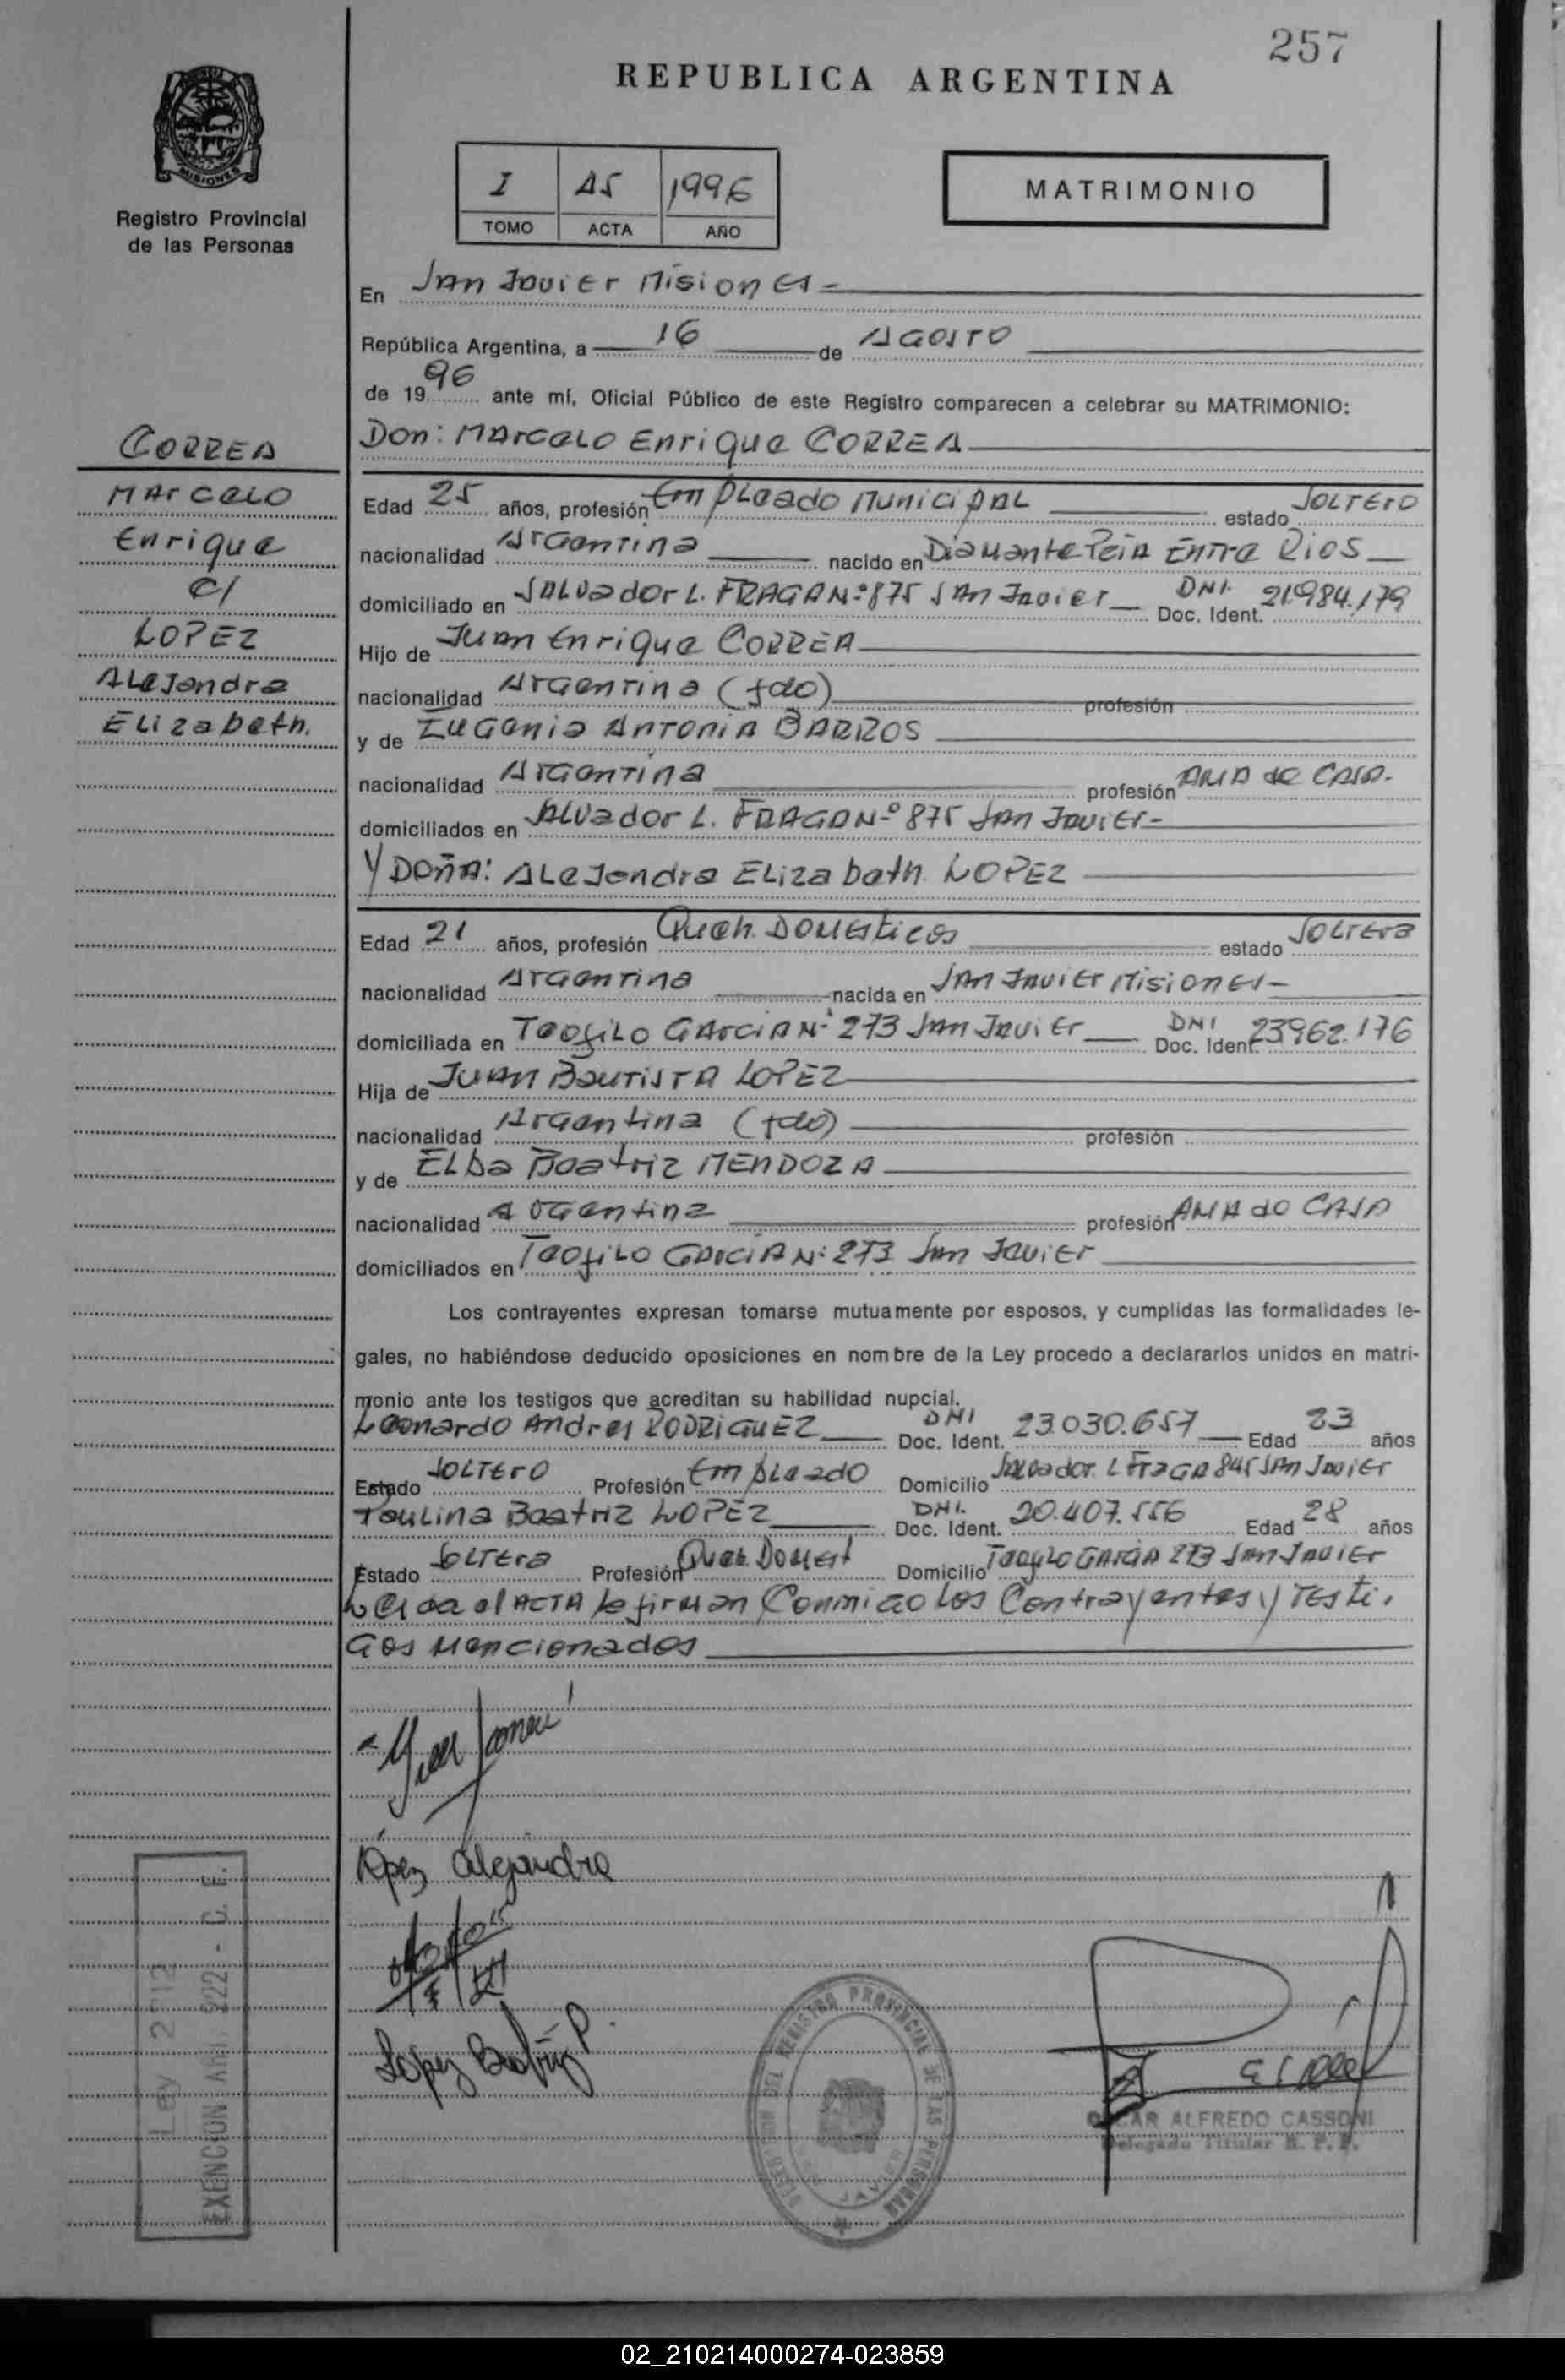 257
REPUBLICA ARGENTINA
MISIONES
Registro Provincial
de las Personas
I AS 1996
TOMO ACTA AÑO
MATRIMONIO
En San Javier Misiones -
República Argentina, a 16 de AGOSTO
de 1996 ante mí, Oficial Público de este Registro comparecen a celebrar su MATRIMONIO:
Don: MArceLo Enrique CORREA
CORREA
MArceLo
Enrique
c/
LOPEZ
ALeJandra
ELizabeth.
Edad 25 años, profesión EmpLeado MuniciPAL estado SOLTErO
nacionalidad ArGenTina nacido en Diamante Pcia Entre Rios
domiciliado en SALvador L. FRAGA N-º 875 SAn Javier DNI. Doc. Ident. 21.984.179
Hijo de Juan Enrique CORREA
nacionalidad ArGenTina (fdo) profesión
y de EuGenia AnTonia BARROS
nacionalidad ArGenTina profesión AMA de CASA.
domiciliados en SALvador L. FRAGA N-º 875 SAn Javier-
Y DOñA: ALeJandra ELizabeth LOPEZ
Edad 21 años, profesión Queh. DOMEsticos estado SOLTEra
nacionalidad ArGenTina nacida en SAn Javier Misiones-
domiciliada en TeofiLo GArciA N-º 273 SAn Javier DNI Doc. Ident. 23962.176
Hija de JuAn BautisTA LOPEZ
nacionalidad ArGentina (fdo) profesión
y de ELba Beatriz MEnDOZA
nacionalidad ArGentina profesión AMA de CASA
domiciliados en TeofiLo GArciA N-º 273 SAn Javier
Los contrayentes expresan tomarse mutuamente por esposos, y cumplidas las formalidades le-
gales, no habiéndose deducido oposiciones en nombre de la Ley procedo a declararlos unidos en matri-
monio ante los testigos que acreditan su habilidad nupcial.
Leonardo Andres RODRiGuEZ DNI Doc. Ident. 23.030.657 Edad 23 años
Estado SOLTErO Profesión EmpLeado Domicilio Salvador L FraGA 845 SAn Javier
PauLina Beatriz LOPEZ DNI. Doc. Ident. 20.407.556 Edad 28 años
Estado SOLTEra Profesión Queh. DOMEst Domicilio TeofiLo GArciA 273 SAn Javier
Leida el ACTA la firman ConmiGo Los Contrayentes y Testi.
Gos Mencionados
López Alejandra
Lopez Beatriz P.
Ley 2212
EXENCION ART. 222 - C. F.
DELEGACION DEL REGISTRO PROVINCIAL DE LAS PERSONAS
SAN JAVIER
OSCAR ALFREDO CASSONI
Delegado Titular R. P. P.
02_210214000274-023859